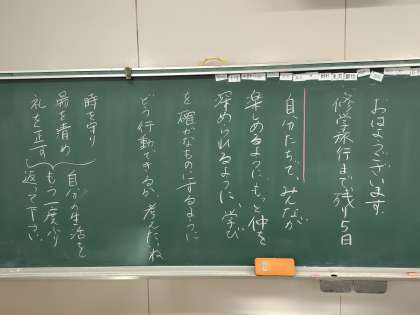 おはようございます。
修学旅行まで残り5日
自分たちで、みんなが
楽しめるように、もっと仲を
深められるように、学び
を確かなものにするように
どう行動できるか、考えたいね
時を守り
場を清め
礼を正す
自分の生活を
もう一度ふり
返って下さい。